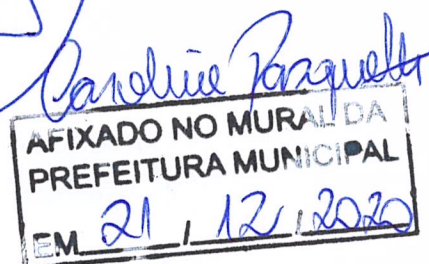 Caroline Pasqualetti
AFIXADO NO MURAL DA
PREFEITURA MUNICIPAL
EM 21 / 12 / 2020